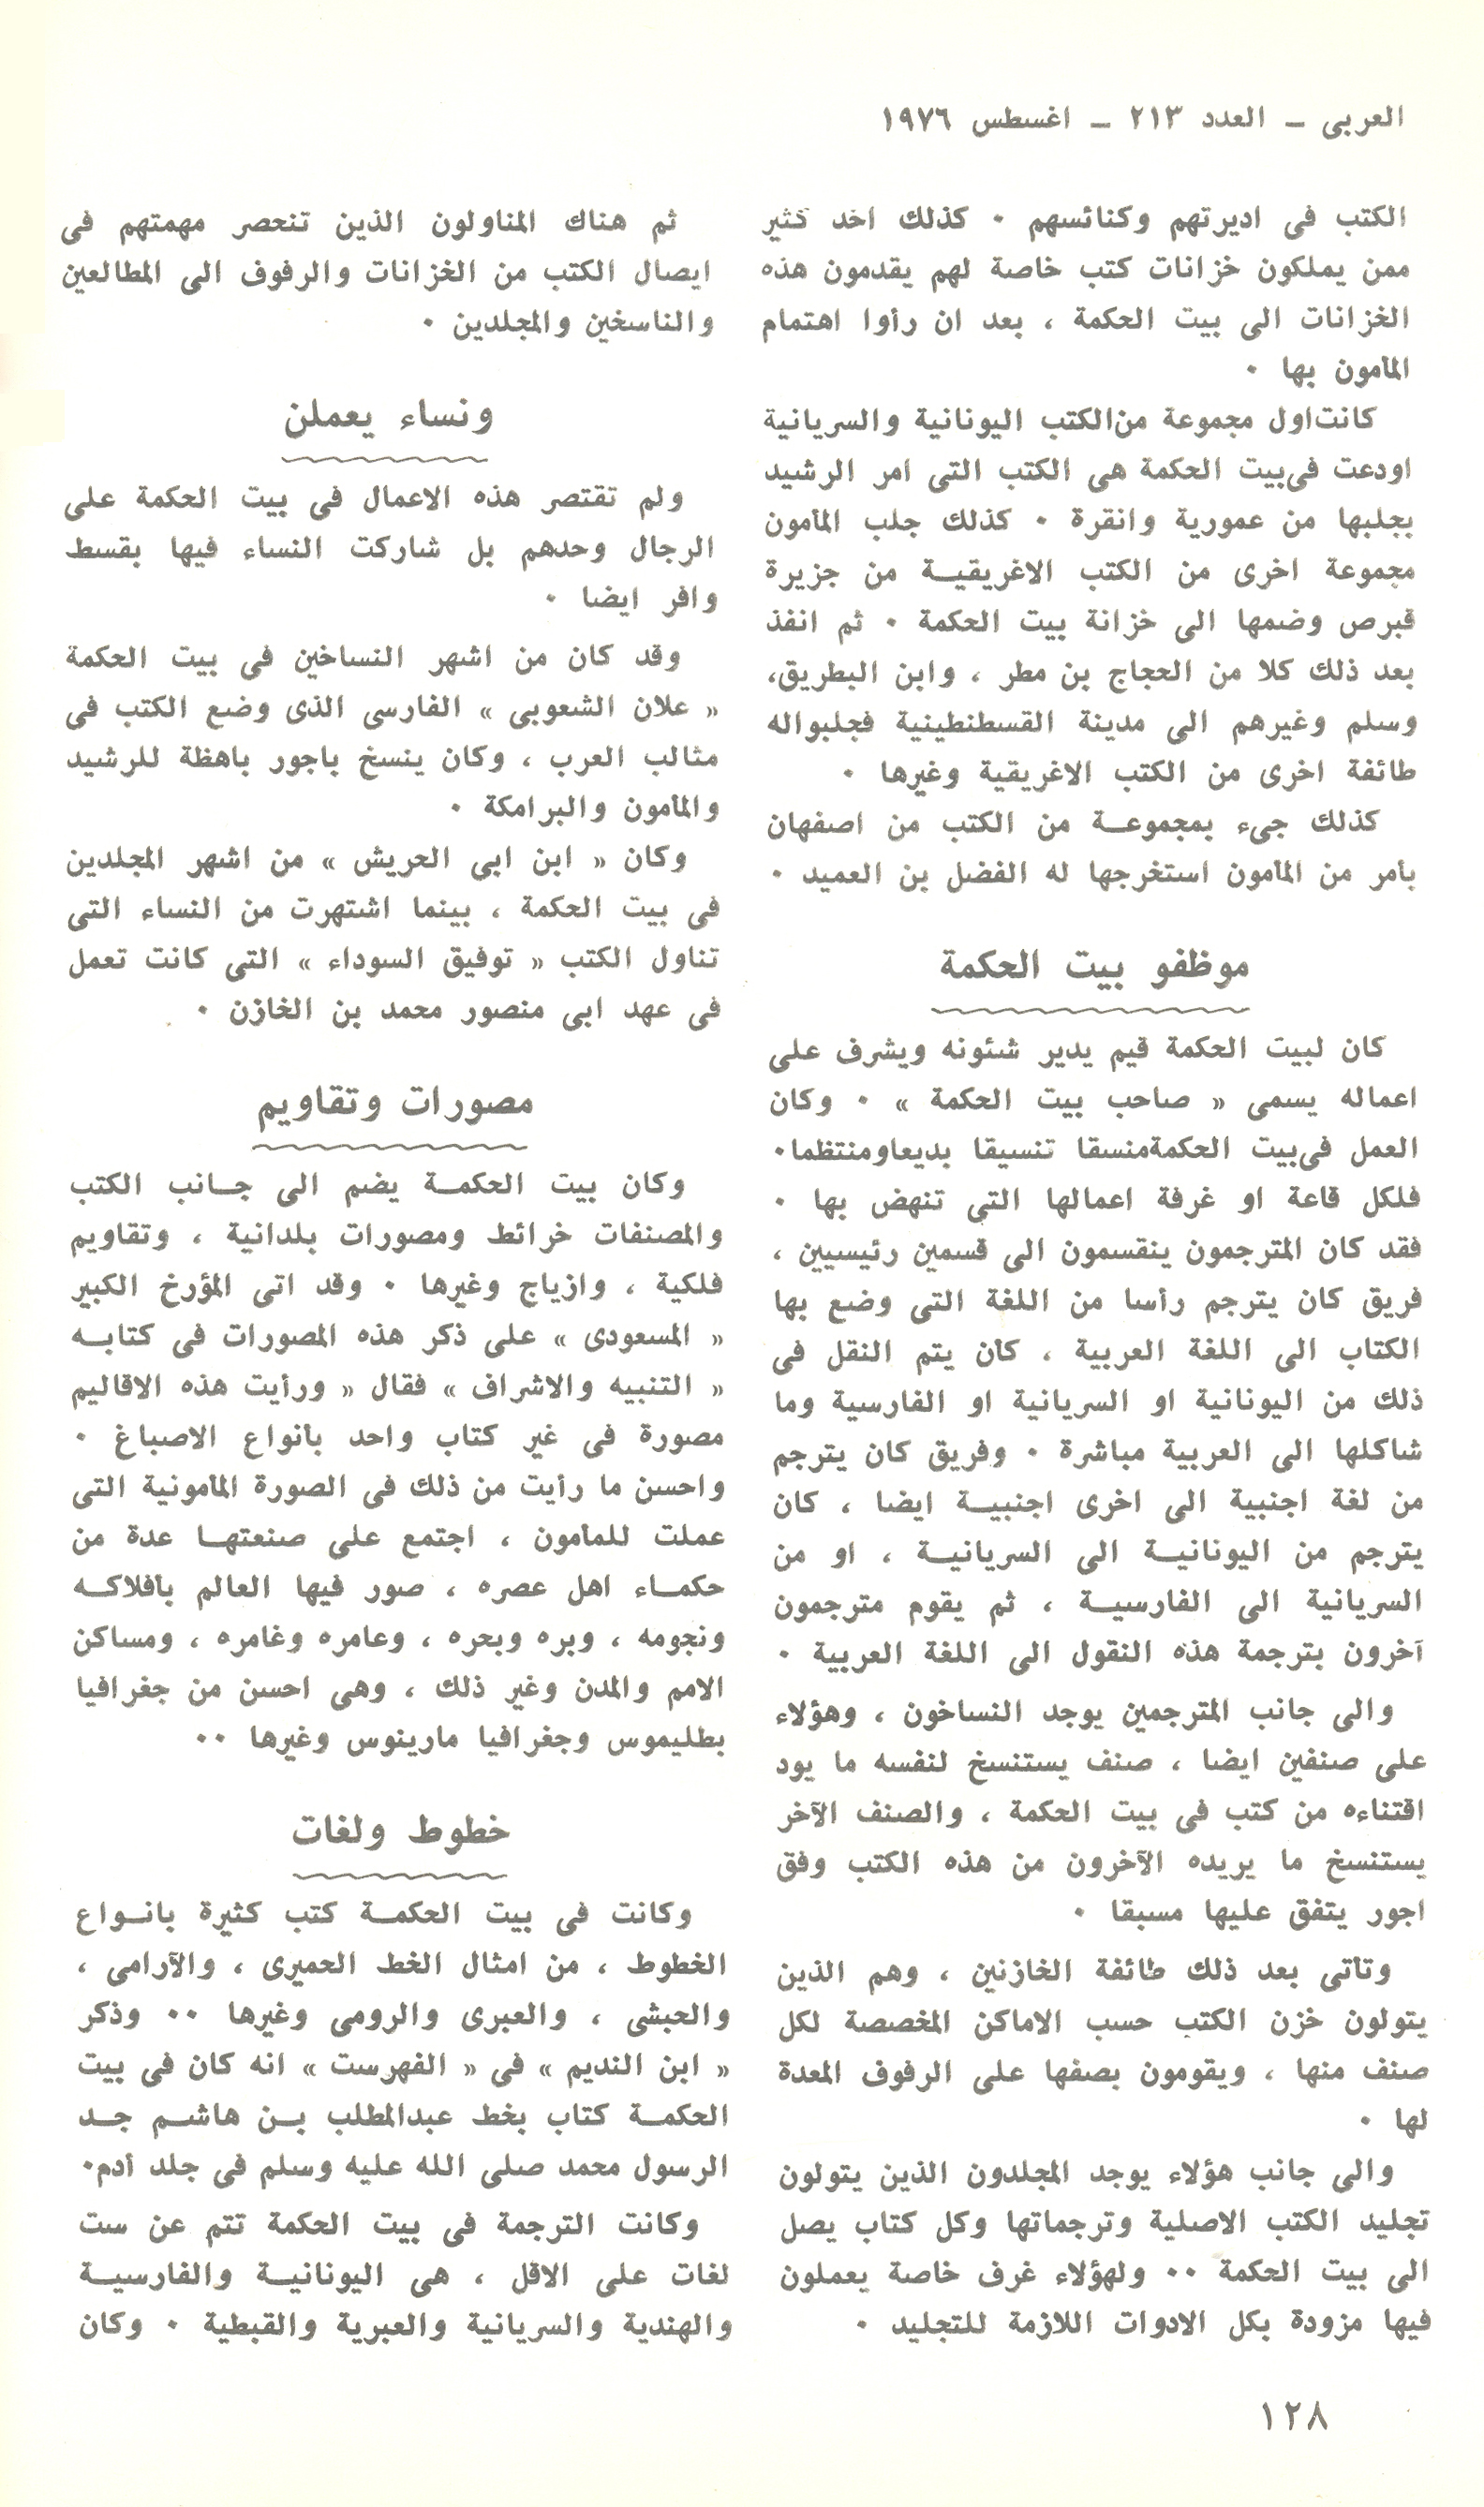 العربى – العدد ٢١٣ – اغسطس ١٩٧٦
الكتب فى اديرتهم وكنائسهم ٠ كذلك اخد كثير
ممن يملكون خزانات كتب خاصة لهم يقدمون هذه
الخزانات الى بيت الحكمة ، بعد ان رأوا اهتمام
المأمون بها ٠
كانت اول مجموعة من الكتب اليونانية والسريانية
اودعت فى بيت الحكمة هى الكتب التى امر الرشيد
بجلبها من عمورية وانقرة ٠ كذلك جلب المأمون
مجموعة اخرى من الكتب الاغريقيـة من جزيرة
قبرص وضمها الى خزانة بيت الحكمة ٠ ثم انفذ
بعد ذلك كلا من الحجاج بن مطر ، وابن البطريق،
وسلم وغيرهم الى مدينة القسطنطينية فجلبوا له
طائفة اخرى من الكتب الاغريقية وغيرها ٠
كذلك جىء بمجموعـة من الكتب من اصفهان
بأمر من المأمون استخرجها له الفضل بن العميد ٠
موظفو بيت الحكمة
كان لبيت الحكمة قيم يدير شئونه ويشرف على
اعماله يسمى « صاحب بيت الحكمة » ٠ وكان
العمل فى بيت الحكمة منسقا تنسيقا بديعا ومنتظما٠
فلكل قاعة او غرفة اعمالها التى تنهض بها ٠
فقد كان المترجمون ينقسمون الى قسمين رئيسيين ،
فريق كان يترجم رأسا من اللغة التى وضع بها
الكتاب الى اللغة العربية ، كأن يتم النقل فى
ذلك من اليونانية او السريانية او الفارسية وما
شاكلها الى العربية مباشرة ٠ وفريق كان يترجم
من لغة اجنبية الى اخرى اجنبيـة ايضا ، كان
يترجم من اليونانيـة الى السريانيـة ، او من
السريانية الى الفارسيـة ، ثم يقوم مترجمون
آخرون بترجمة هذه النقول الى اللغة العربية ٠
والى جانب المترجمين يوجد النساخون ، وهؤلاء
على صنفين ايضا ، صنف يستنسخ لنفسه ما يود
اقتناءه من كتب فى بيت الحكمة ، والصنف الآخر
يستنسخ ما يريده الآخرون من هذه الكتب وفق
اجور يتفق عليها مسبقا ٠
وتأتى بعد ذلك طائفة الخازنين ، وهم الذين
يتولون خزن الكتب حسب الاماكن المخصصة لكل
صنف منها ، ويقومون بصفها على الرفوف المعدة
لها ٠
والى جانب هؤلاء يوجد المجلدون الذين يتولون
تجليد الكتب الاصلية وترجماتها وكل كتاب يصل
الى بيت الحكمة ٠٠ ولهؤلاء غرف خاصة يعملون
فيها مزودة بكل الادوات اللازمة للتجليد ٠
ثم هناك المناولون الذين تنحصر مهمتهم فى
ايصال الكتب من الخزانات والرفوف الى المطالعين
والناسخين والمجلدين ٠
ونساء يعملن
ولم تقتصر هذه الاعمال فى بيت الحكمة على
الرجال وحدهم بل شاركت النساء فيها بقسط
وافر ايضا ٠
وقد كان من اشهر النساخين فى بيت الحكمة
« علان الشعوبى » الفارسى الذى وضع الكتب فى
مثالب العرب ، وكان ينسخ باجور باهظة للرشيد
والمأمون والبرامكة ٠
وكان « ابن ابى الحريش » من اشهر المجلدين
فى بيت الحكمة ، بينما اشتهرت من النساء التى
تناول الكتب « توفيق السوداء » التى كانت تعمل
فى عهد ابى منصور محمد بن الخازن ٠
مصورات وتقاويم
وكان بيت الحكمـة يضم الى جـانب الكتب
والمصنفات خرائط ومصورات بلدانية ، وتقاويم
فلكية ، وازياج وغيرها ٠ وقد اتى المؤرخ الكبير
« المسعودى » على ذكر هذه المصورات فى كتابـه
« التنبيه والاشراف » فقال « ورأيت هذه الاقاليم
مصورة فى غير كتاب واحد بأنواع الاصباغ ٠
واحسن ما رأيت من ذلك فى الصورة المأمونية التى
عملت للمأمون ، اجتمع على صنعتهـا عدة من
حكمـاء اهل عصره ، صور فيها العالم بافلاكـه
ونجومه ، وبره وبحره ، وعامره وغامره ، ومساكن
الامم والمدن وغير ذلك ، وهى احسن من جغرافيا
بطليموس وجغرافيا مارينوس وغيرها ٠٠
خطوط ولغات
وكانت فى بيت الحكمـة كتب كثيرة بانـواع
الخطوط ، من امثال الخط الحميرى ، والآرامى ،
والحبشى ، والعبرى والرومى وغيرها ٠٠ وذكر
« ابن النديم » فى « الفهرست » انه كان فى بيت
الحكمـة كتاب بخط عبدالمطلب بـن هاشـم جـد
الرسول محمد صلى الله عليه وسلم فى جلد أدم٠
وكانت الترجمة فى بيت الحكمة تتم عن ست
لغات على الاقل ، هى اليونانيـة والفارسيـة
والهندية والسريانية والعبرية والقبطية ٠ وكان
١٢٨